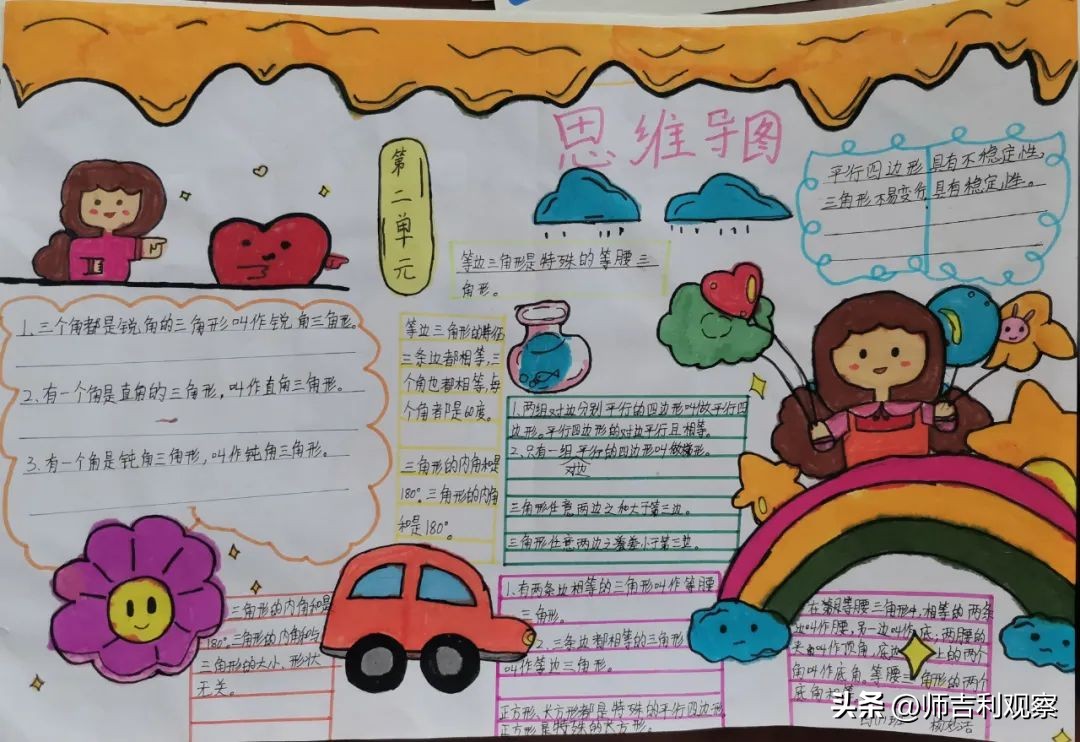 思维导图
第二单元
平行四边形具有不稳定性,
三角形不易变形具有稳定性。
等边三角形是特殊的等腰三
角形。
1、三个角都是锐角的三角形叫作锐角三角形。
2、有一个角是直角的三角形,叫作直角三角形。
3、有一个角是钝角三角形,叫作钝角三角形。
等边三角形的特征
三条边都相等,三
个角也都相等,每
个角都是60度。
三角形的内角和是
180°。三角形的内角
和是180°。
1、两组对边分别平行的四边形叫做平行四
边形。平行四边形的对边平行且相等。
2、只有一组平行的四边形叫做梯形。
对边
三角形任意两边之和大于第三边。
三角形任意两边之差小于第三边。
三角形的内角和是
180°。三角形的内角和与
三角形的大小、形状
无关。
1、有两条边相等的三角形叫作等腰
三角形。
2、三条边都相等的三角形
叫作等边三角形。
正方形、长方形都是特殊的平行四边形
正方形是特殊的长方形。
在等腰三角形中,相等的两条
边叫作腰,另一边叫作底,两腰的
夹角叫作顶角,底边上的两个
角叫作底角。等腰三角形的两个
底角相等
头条 @师吉利观察